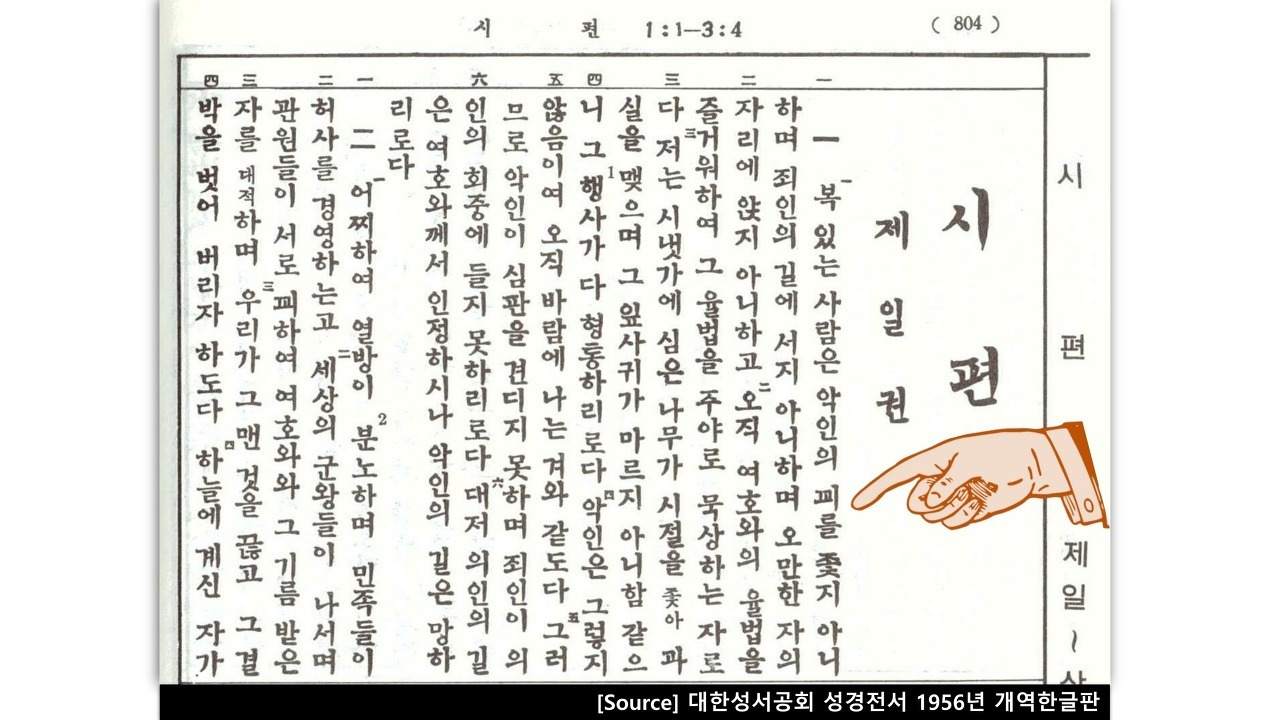 시 편 1:1—3:4 ( 804 )
시 편 제일~
一 二 三 四 五 六 一 二 三 四
시 편
제 일 권
一 一복 있는 사람은 악인의 꾀를 좇지 아니
하며 죄인의 길에 서지 아니하며 오만한 자의
자리에 앉지 아니하고 二오직 여호와의 율법을
즐거워하여 그 율법을 주야로 묵상하는 자로
다 三저는 시냇가에 심은 나무가 시절을 좇아 과
실을 맺으며 그 잎사귀가 마르지 아니함 같으
니 그 1행사가 다 형통하리로다 四악인은 그렇지
않음이여 오직 바람에 나는 겨와 같도다 五그러
므로 악인이 심판을 견디지 못하며 죄인이 의
인의 회중에 들지 못하리로다 六대저 의인의 길
은 여호와께서 인정하시나 악인의 길은 망하
리로다
二 一어찌하여 열방이 2분노하며 민족들이
허사를 경영하는고 二세상의 군왕들이 나서며
관원들이 서로 꾀하여 여호와와 그 기름 받은
자를 대적하며 三우리가 그 맨 것을 끊고 그 결
박을 벗어 버리자 하도다 四하늘에 계신 자가
[Source] 대한성서공회 성경전서 1956년 개역한글판